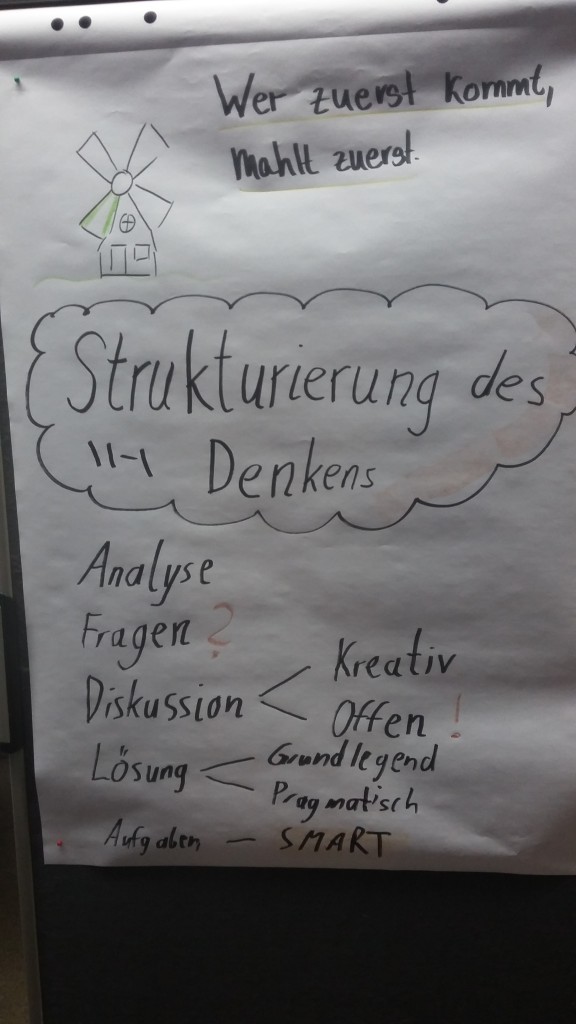 Wer zuerst kommt,
Mahlt zuerst.
Strukturierung des
Denkens
Analyse
Fragen ?
Diskussion < Kreativ
Offen !
Lösung < Grundlegend
Pragmatisch
Aufgaben – SMART